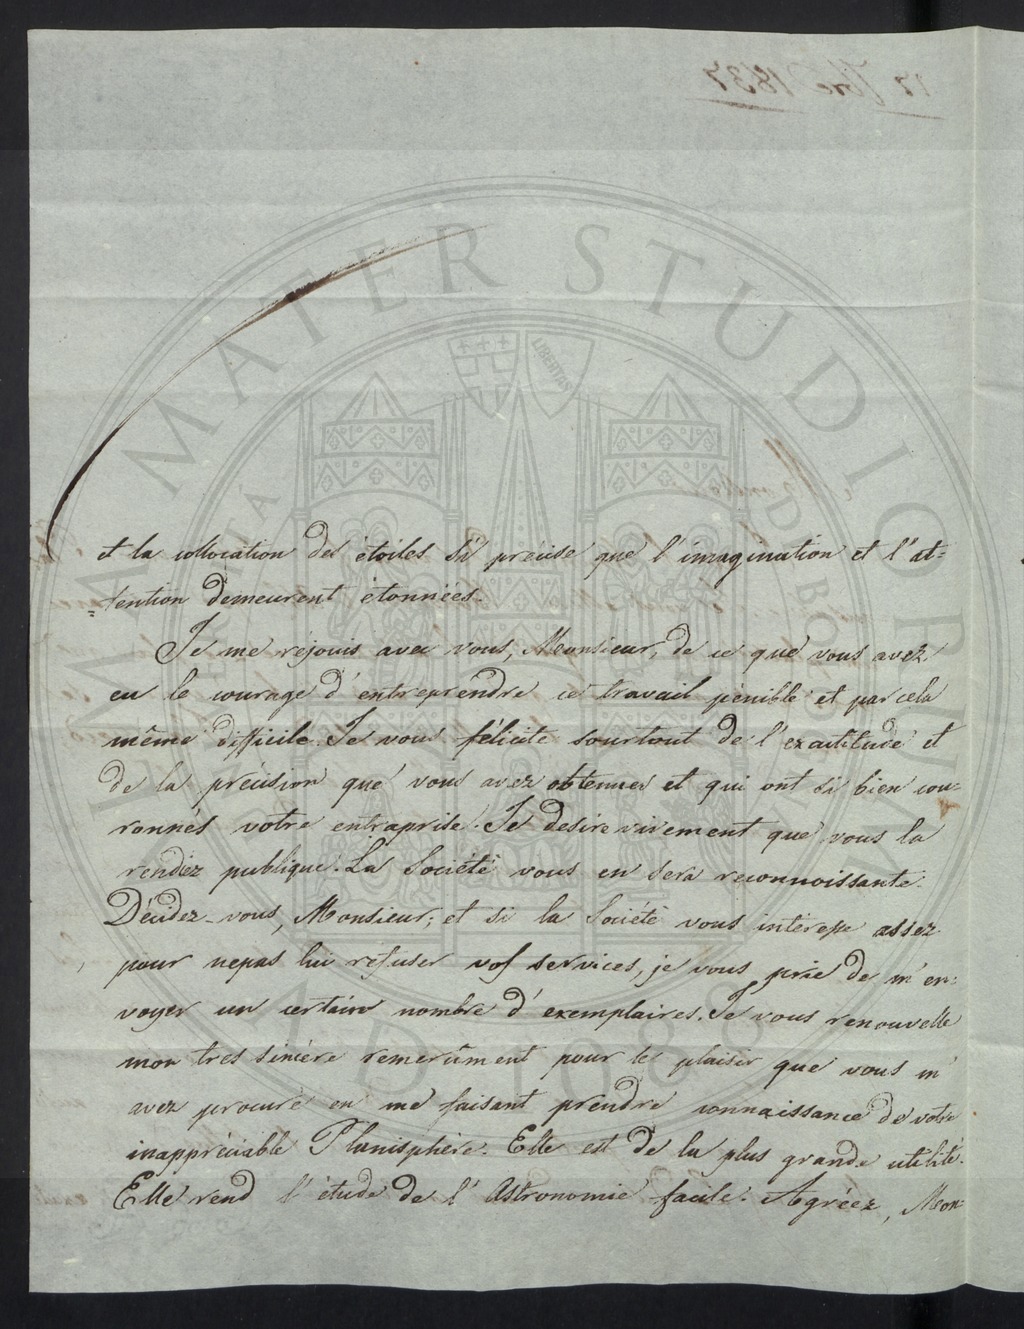 et la collocation des étoiles si précise que l'imagination et l'at=
=tention demeurent étonnées.
Je me réjouis avec vous, Monsieur, de ce que vous avez
eu le courage d'entreprendre ce travail pénible et par cela
même difficile. Je vous félicite sourtout de l'exactitude et
de la précision que vous avez obtenues et qui ont si bien cou=
ronnés votre entraprise. Je desire vivement que vous la
rendiez publique. La Société vous en sera reconnoissante.
Décidez-vous, Monsieur, et si la Société vous intéresse assez
pour ne pas lui refuser vos services, je vous prie de m'en=
voyer un certain nombre d'exemplaires. Je vous renouvelle
mon tres sincère remerciment pour le plaisir que vous m'
avez procuré en me faisant prendre connaissance de votre
inappréciable Planisphère. Elle est de la plus grande utilité.
Elle rend l'étude de l'Astronomie facile. Agréez, Mon=
ALMA MATER STUDIORUM
LIBERTAS
A.D. 1088